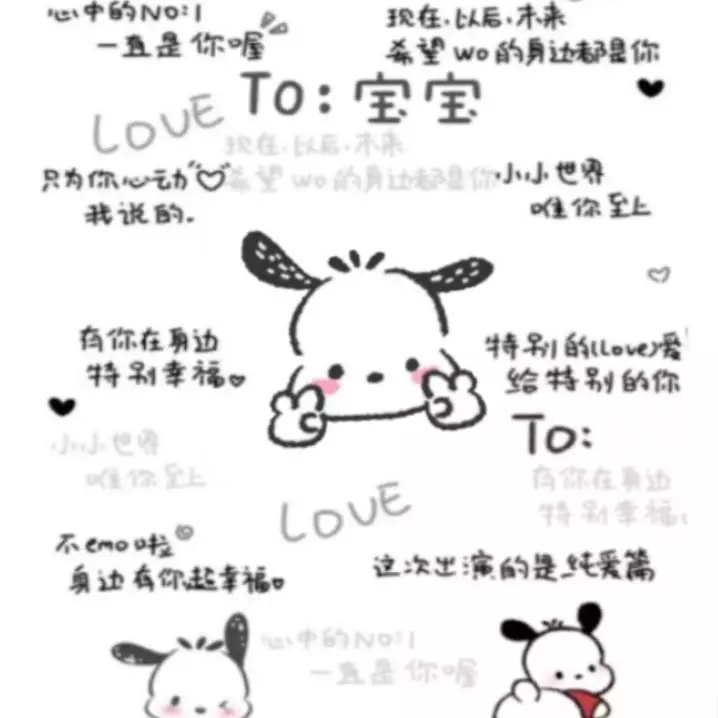 心中的NO:1
一直是你喔
现在,以后,未来
希望wo的身边都是你
To:宝宝
LOVE
现在,以后,未来
希望wo的身边都是你
只为你心动
我说的.
小小世界
唯你至上
有你在身边
特别幸福
特别的(Love)爱
给特别的你
To:
小小世界
唯你至上
有你在身边
特别幸福
LOVE
不emo啦
身边有你超幸福
这次出演的是纯爱篇
心中的NO:1
一直是你喔